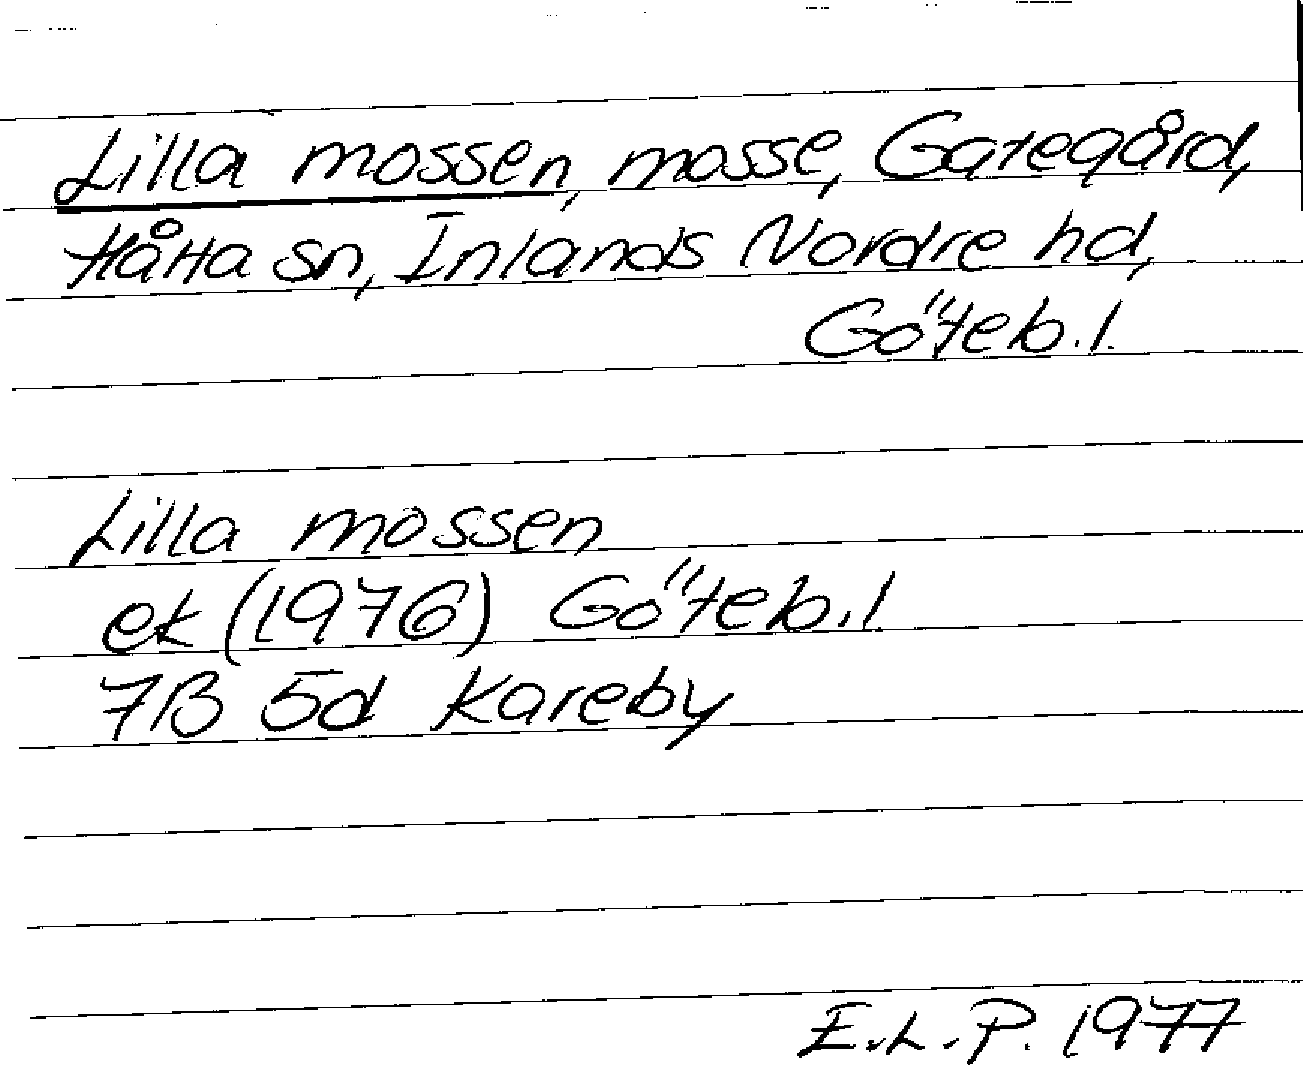 Lilla mossen, mosse, Gategård,
Hålta sn, Inlands Nordre hd,
Göteb.l.
Lilla mossen
ek (1976) Göteb.l
7B 5d Kareby
E.L.P. 1977